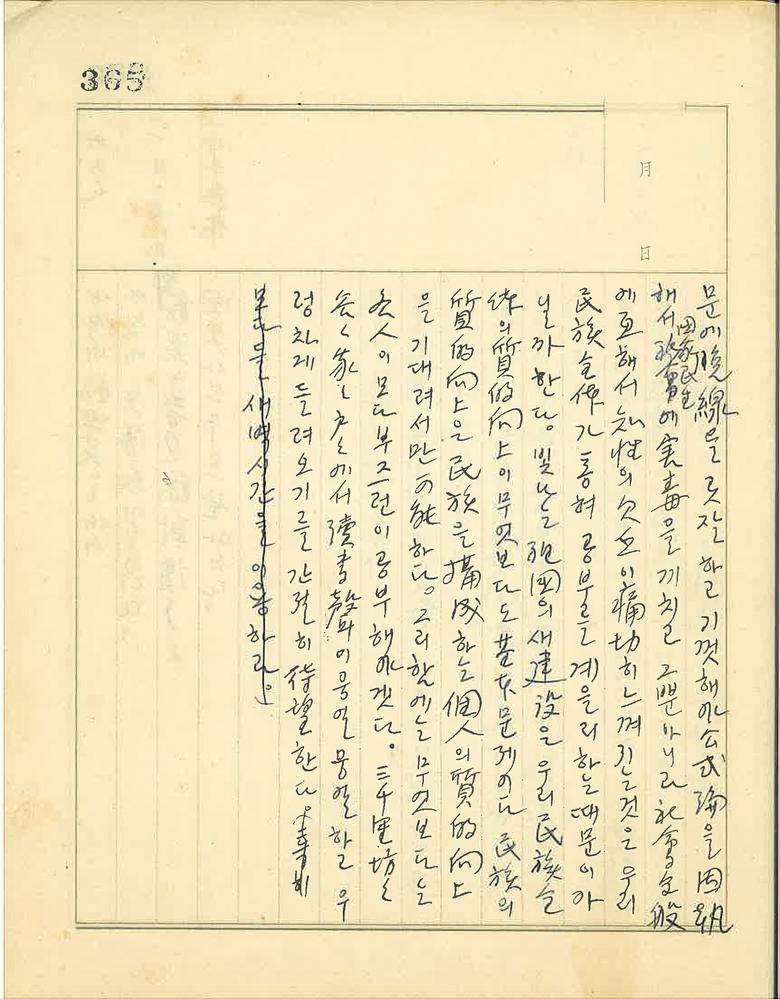 365
月
日
문에 晩線을 긋잘 하고 기껏해야 公式論을 固執
해서 國家民生에 害毒을 끼치고 그뿐아니라 社會全般
에 亘해서 知性의 欠乏이 痛切히 느껴지는것은 우리
民族全体가 통혀 공부를 게을리하는 때문이 아
닐까 한다. 빛나는 祖國의 새建設은 우리 民族全
体의 質的向上이 무엇보다도 基本문제이다 民族의
質的向上은 民族을 構成하는 個人의 質的向上
을 기대려서만 可能하다. 그리함에는 무엇보다는
各人이 모다 부즈런이 공부해야겠다. 三千里坊々
谷々 家々 戶々에서 讀書聲이 웅얼뭉얼하고 우
렁차게 들려오기를 간절히 待望한다.
모다들 새벽시간을 이용하라.